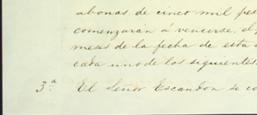 abonas de cinco mil pes
comenzarán á vencerse, el p
meses de la fecha de esta e
cada uno de los siguientes.
3.ª El Señor Escandon se co